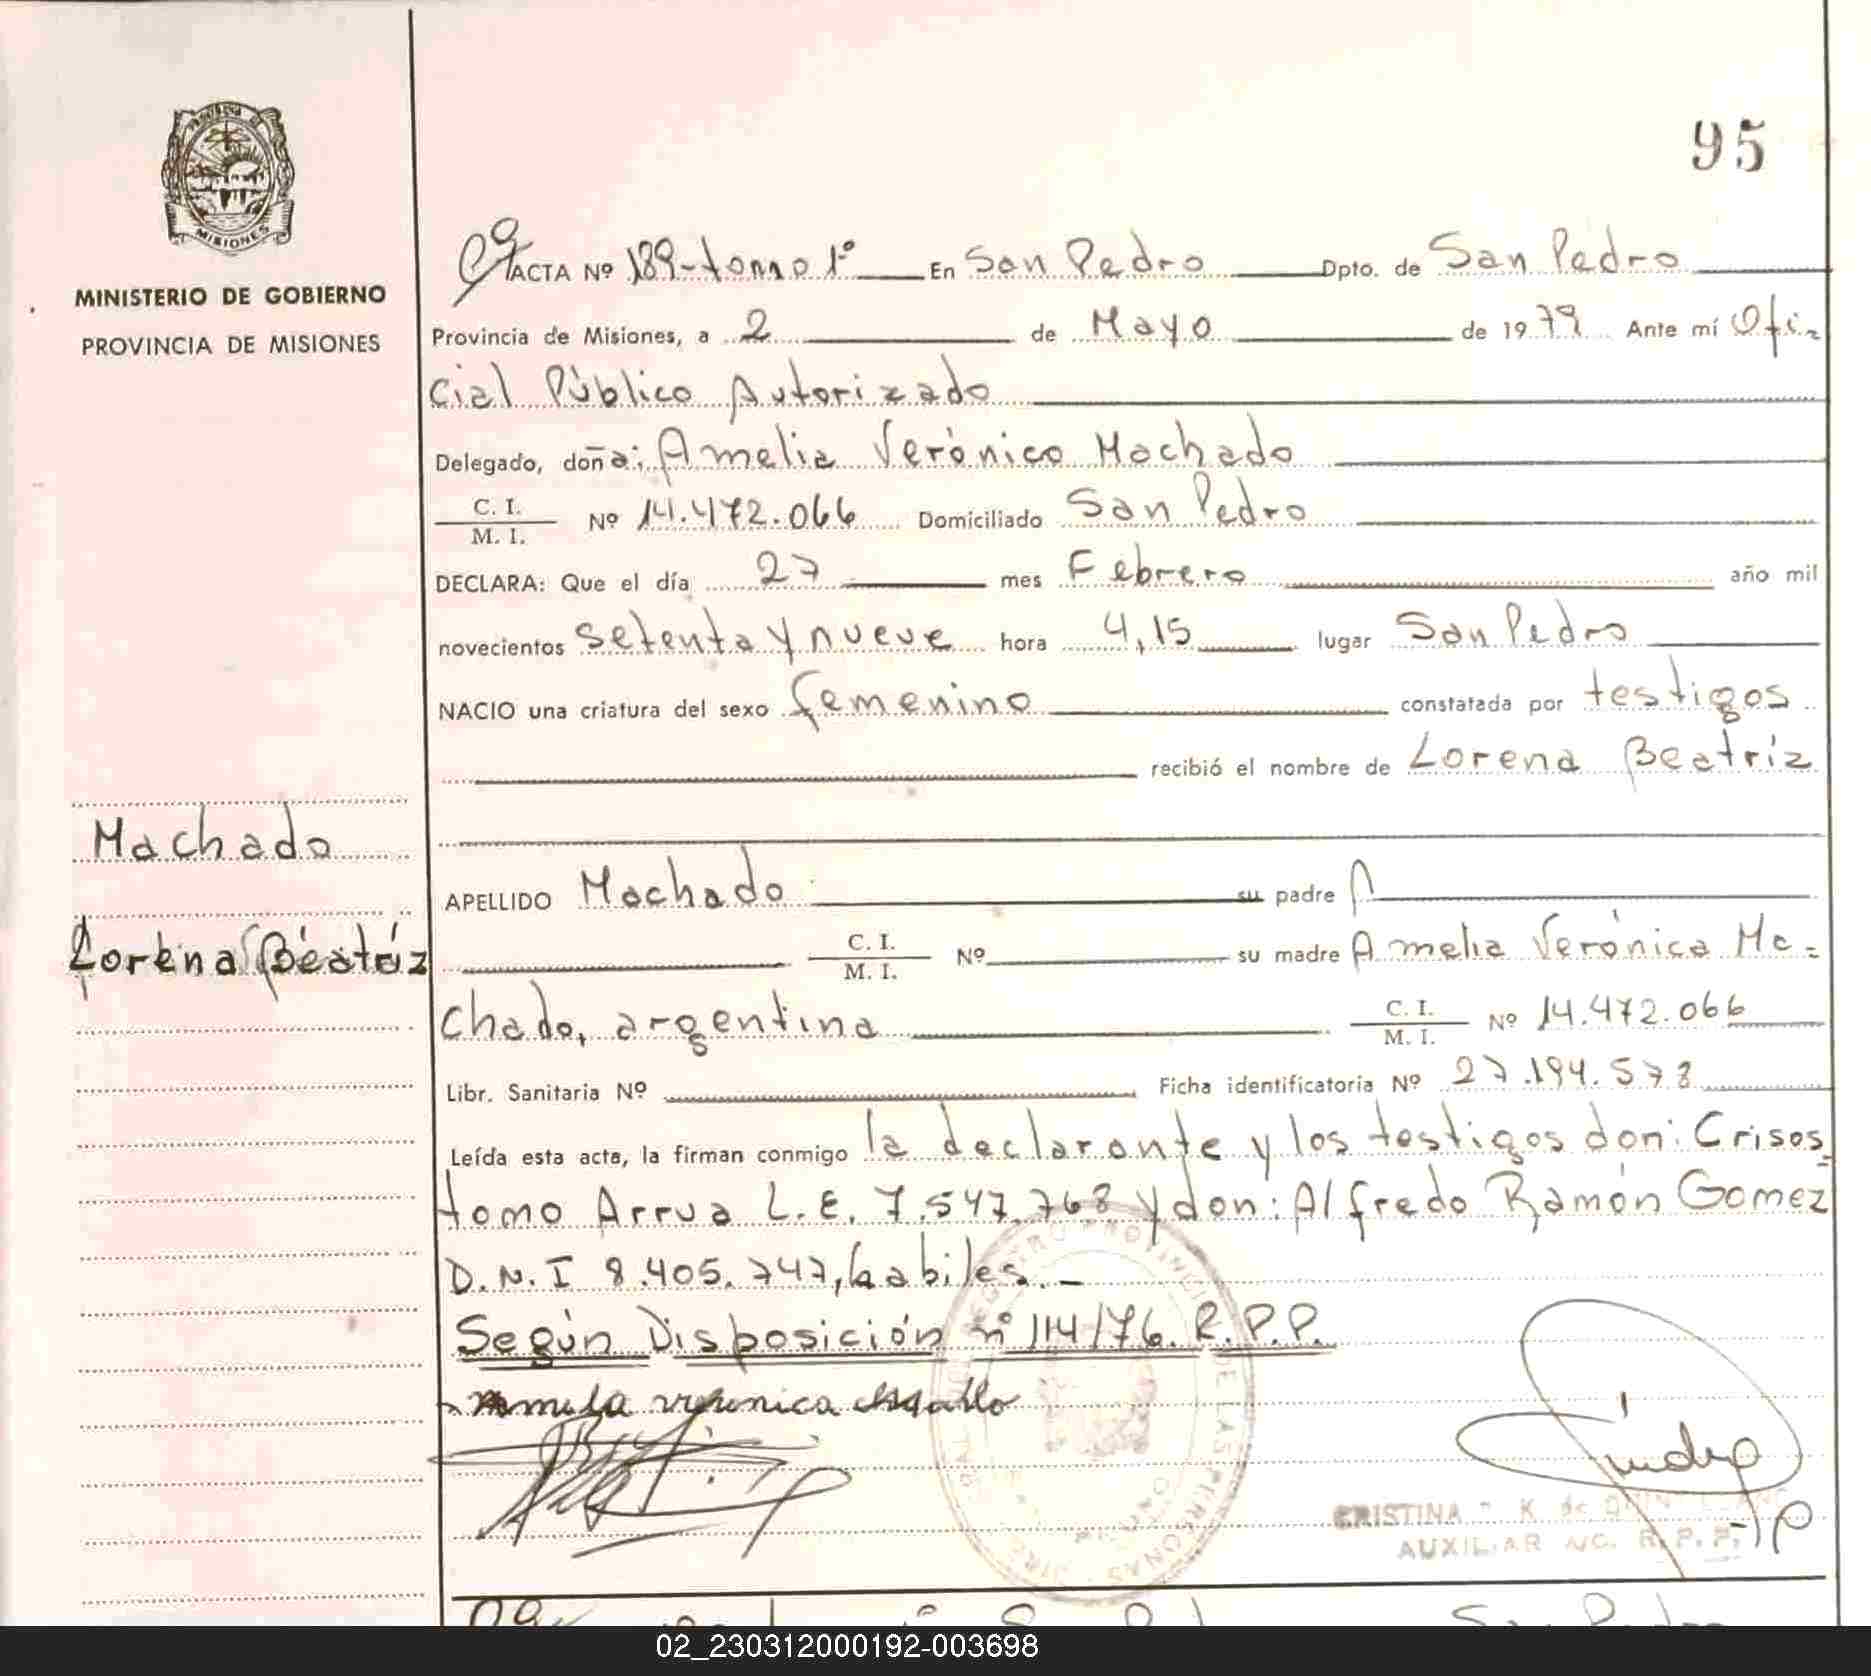 95
MINISTERIO DE GOBIERNO
PROVINCIA DE MISIONES
ACTA Nº 189-tomo 1º En San Pedro Dpto. de San Pedro
Provincia de Misiones, a 2 de Mayo de 1979 Ante mí Ofi-
cial Público Autorizado
Delegado, doña: Amelia Verónica Machado
C. I. / M. I. Nº 14.472.066 Domiciliado San Pedro
DECLARA: Que el día 27 mes Febrero año mil
novecientos setenta y nueve hora 4,15 lugar San Pedro
NACIO una criatura del sexo femenino constatada por testigos
recibió el nombre de Lorena Beatríz
Machado
Lorena Beatríz
APELLIDO Machado su padre
C. I. / M. I. Nº su madre Amelia Verónica Ma=
chado, argentina C. I. / M. I. Nº 14.472.066
Libr. Sanitaria Nº Ficha identificatoria Nº 27.194.578
Leída esta acta, la firman conmigo la declarante y los testigos don: Crisos=
tomo Arrua L.E. 7.547.768 y don: Alfredo Ramón Gomez
D.N.I 8.405.747, habiles.-
Según Disposición nº 114/76. R.P.P.
veronica
CRISTINA K. de
AUXILIAR R.P.P.
San Pedro
02_230312000192-003698